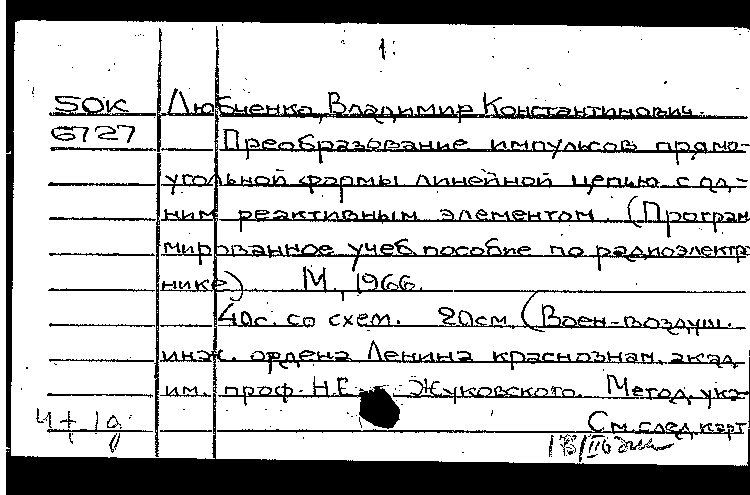 1.
50К Любченко, Владимир Константинович.
6727 Преобразование импульсов прямо-
угольной формы линейной цепью с од-
ним реактивным элементом. (Програм
мированное учеб. пособие по радиоэлектро
нике) М., 1966.
40с. со схем. 20см. (Воен-воздуш.
инж. ордена Ленина краснознам. акад.
им. проф. Н.Е. Жуковского. Метод. ука-
См. след. карт.